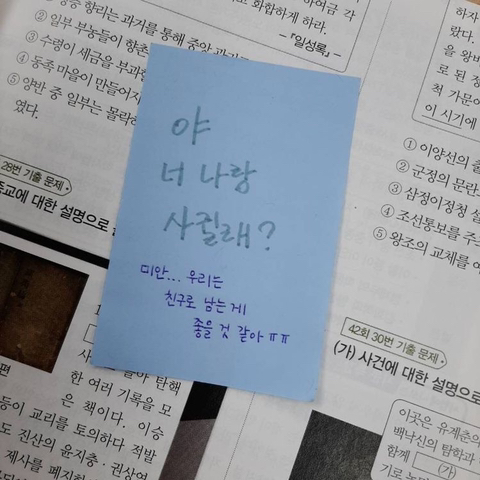 중앙 향리는 과거를 통해 중앙 과
② 일부 부농들이 향촌
③ 수령이 세금을 부과할
④ 동족 마을이 만들어지
⑤ 양반 중 일부는 몰락하
였다.
하여금 각
고 화합하게 하라.
- 『일성록』 -
하자
을 왕비
로 된 정
척 가문이
이 시기에
① 이양선의 출
② 군정의 문란
③ 삼정이정청 설
④ 조선통보를 주
⑤ 왕조의 교체를 예
야
너 나랑
사귈래?
미안... 우리는
친구로 남는 게
좋을 것 같아 ㅠㅠ
28번 기출 문제
종교에 대한 설명으로
편
한 여러 기록을 모
은 책이다. 이승
등이 교리를 토의하다 적발
도 진산의 윤지충·권상연
제사를 폐지하
42회 30번 기출 문제
(가) 사건에 대한 설명으로
이곳은 유계춘의
백낙신의 탐학과
함께 (가)
기로 논의